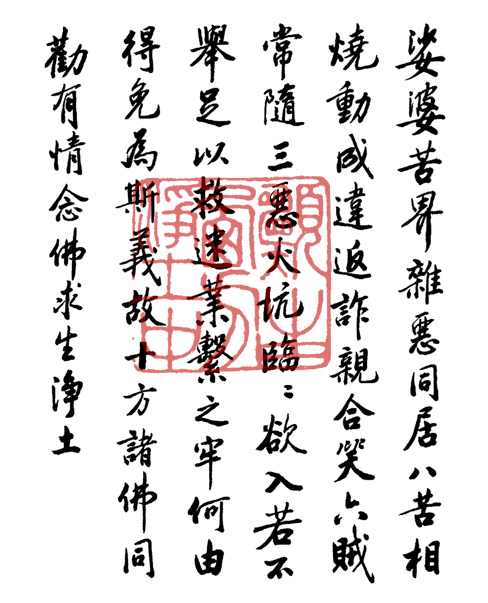 娑婆苦界雜惡同居八苦相
燒動成違返詐親含笑六賊
常隨三惡火坑臨〻欲入若不
舉足以救迷業繫之牢何由
得免為斯義故十方諸佛同
勸有情念佛求生淨土
願生
西方
淨土中